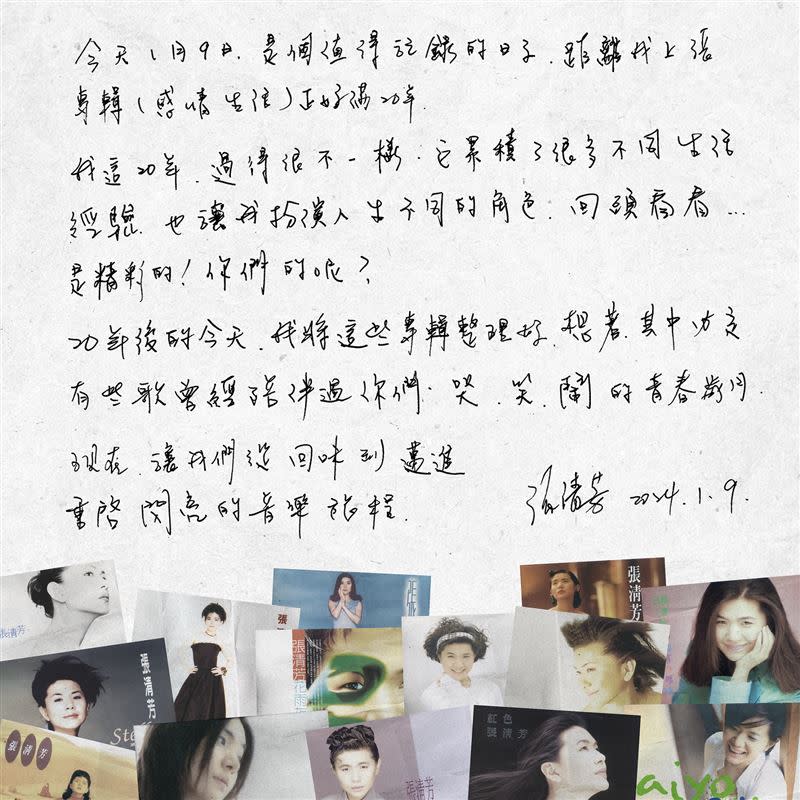 今天1月9日.是個值得記錄的日子.距離我上張
專輯(感情生活)正好滿20年.
我這20年.過得很不一樣.它累積了很多不同生活
經驗.也讓我扮演人生不同的角色.回頭看看...
是精彩的!你們的呢?
20年後的今天.我將這些專輯整理好.想著.其中
有些歌曾經陪伴過你們.哭.笑.鬧的青春歲月.
現在.讓我們從回味到邁進
重啓閃亮的音樂旅程.
張清芳 2024.1.9.
張清芳
張清芳
張清芳
張清芳花雨
張清芳
張清芳
紅色
張清芳
張清芳
aiyo